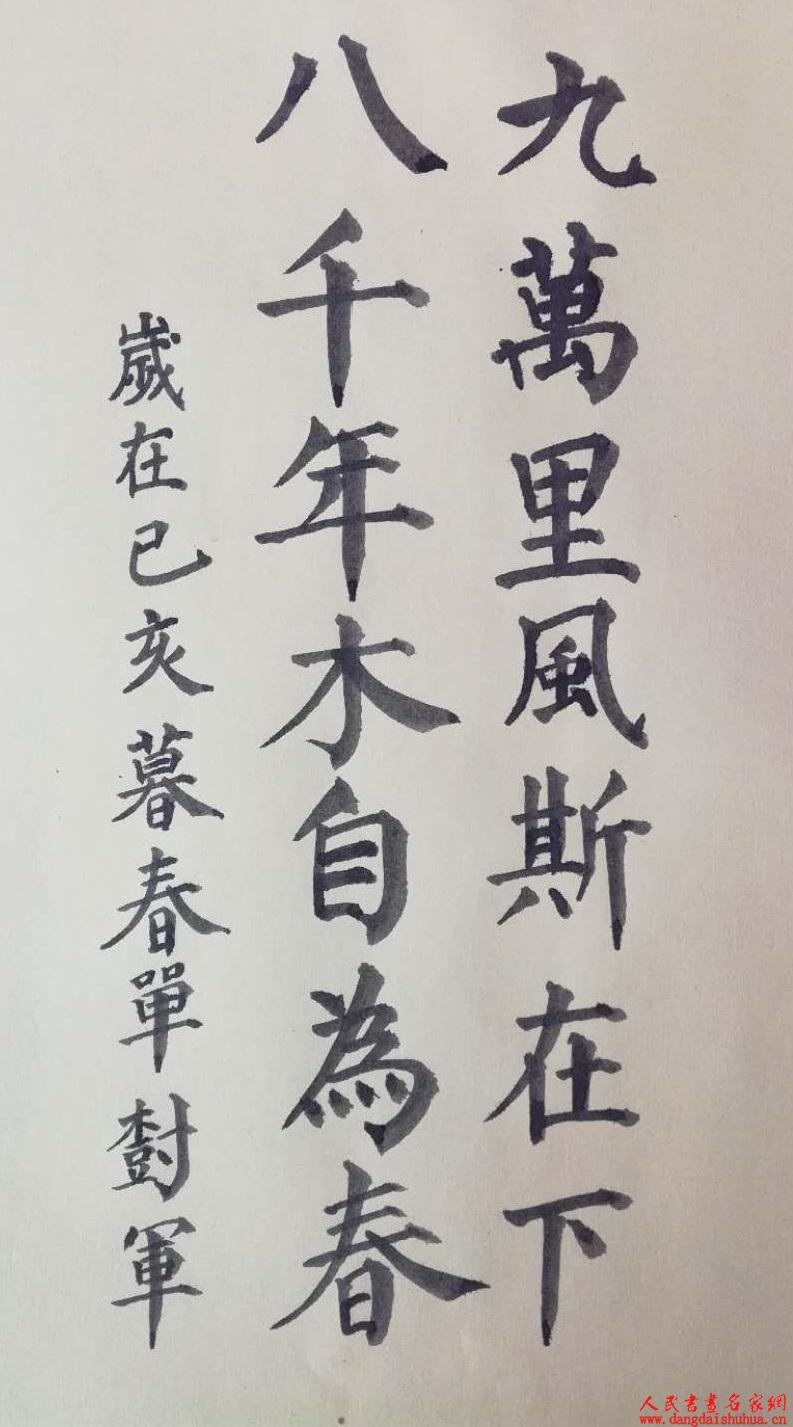 九萬里風斯在下
八千年木自為春
歲在己亥暮春單樹軍
人民書畫名家網
www.dangdaishuhua.cn